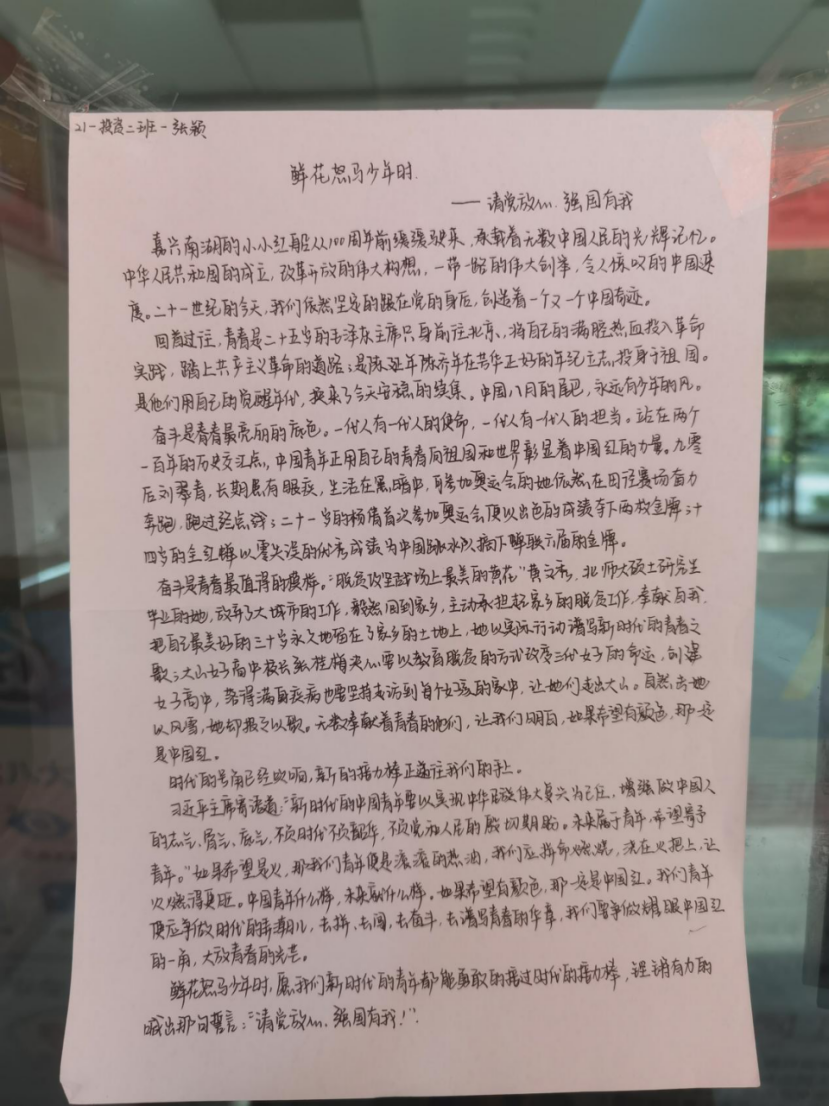 21-投资二班-张颖
鲜花怒马少年时.
——请党放心.强国有我
嘉兴南湖的小小红船从100周年前缓缓驶来，承载着无数中国人民的光辉记忆。
中华人民共和国的成立，改革开放的伟大构想，一带一路的伟大创举，令人惊叹的中国速
度。二十一世纪的今天，我们依然坚定的跟在党的身后，创造着一个又一个中国奇迹。
回首过往，青春是二十五岁的毛泽东主席只身前往北京，将自己的满腔热血投入革命
实践，踏上共产主义革命的道路；是陈延年陈乔年在芳华正好的年纪立志投身于祖国。
是他们用自己的觉醒年代，换来了今天安稳的续集。中国八月的尾巴，永远有少年的风。
奋斗是青春最亮丽的底色。一代人有一代人的使命，一代人有一代人的担当。站在两个
一百年的历史交汇点，中国青年正用自己的青春向祖国和世界彰显着中国红的力量。九零
后刘翠青，长期患有眼疾，生活在黑暗中，可参加奥运会的她依然在田径赛场奋力
奔跑，跑过终点线；二十一岁的杨倩首次参加奥运会便以出色的成绩夺下两枚金牌；十
四岁的全红婵以零失误的优秀成绩为中国跳水队摘下蝉联六届的金牌。
奋斗是青春最值得的模样。“脱贫攻坚战场上最美的黄花”黄文秀，北师大硕士研究生
毕业的她，放弃了大城市的工作，毅然回到家乡，主动承担起家乡的脱贫工作，奉献自我，
把自己最美好的三十岁永久地留在了家乡的土地上，她以实际行动谱写新时代的青春之
歌；大山女子高中校长张桂梅决心要以教育脱贫的方式改变三代女子的命运，创建
女子高中，落得满身疾病也要坚持走访到每个女孩的家中，让她们走出大山。自然击她
以风雪，她却报之以歌。无数奉献着青春的她们，让我们明白，如果希望有颜色，那一定
是中国红。
时代的号角已经吹响，新的接力棒正递往我们的手上。
习近平主席寄语道：“新时代的中国青年要以实现中华民族伟大复兴为己任，增强做中国人
的志气、骨气、底气，不负时代不负韶华，不负党和人民的殷切期盼。未来属于青年，希望寄予
青年。”如果希望是火，那我们青年便是滚滚的热油，我们应拼命燃烧，浇在火把上，让
火燃得更旺。中国青年什么样，未来就什么样。如果希望有颜色，那一定是中国红。我们青年
便应争做时代的弄潮儿，去拼、去闯、去奋斗，去谱写青春的华章，我们要争做耀眼中国红
的一角，大放青春的光芒。
鲜花怒马少年时，愿我们新时代的青年都能勇敢的接过时代的接力棒，铿锵有力的
喊出那句誓言：“请党放心.强国有我！”.